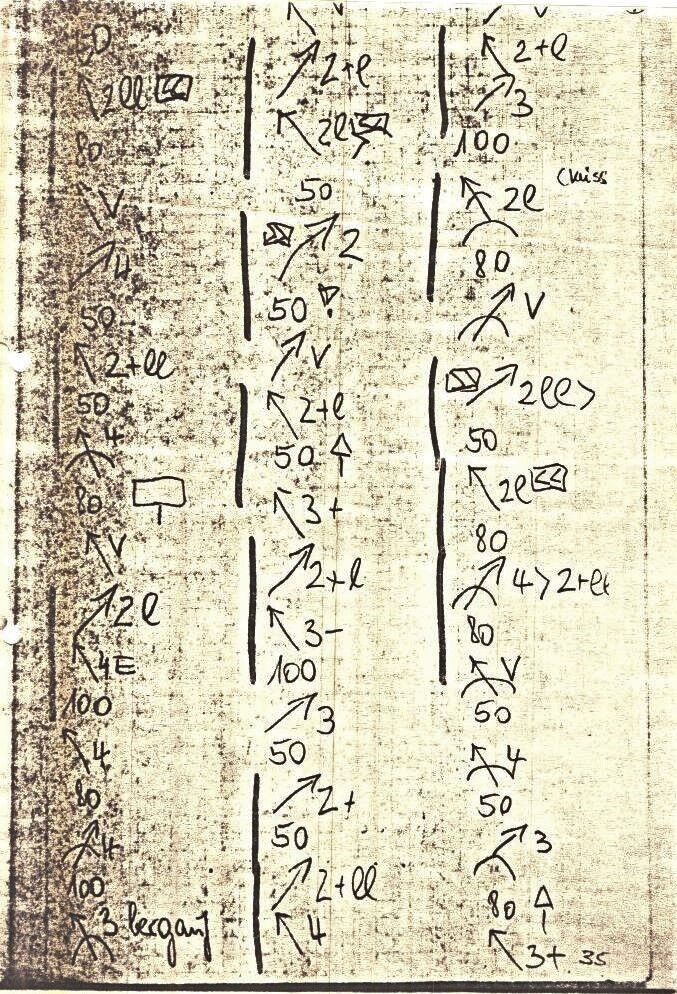 50
2ll
80
V
4
50
2+ll
50
4
80
V
2l
4E
100
4
80
4
100
3 bergauf
V
2+l
2l
50
2
50
V
2+l
50
3+
2+l
3-
100
3
50
2+
50
2+ll
4
V
2+l
3
100
2l
80
V
2ll>
50
2l
80
4>2+ll
80
V
50
4
50
3
80
3+
35